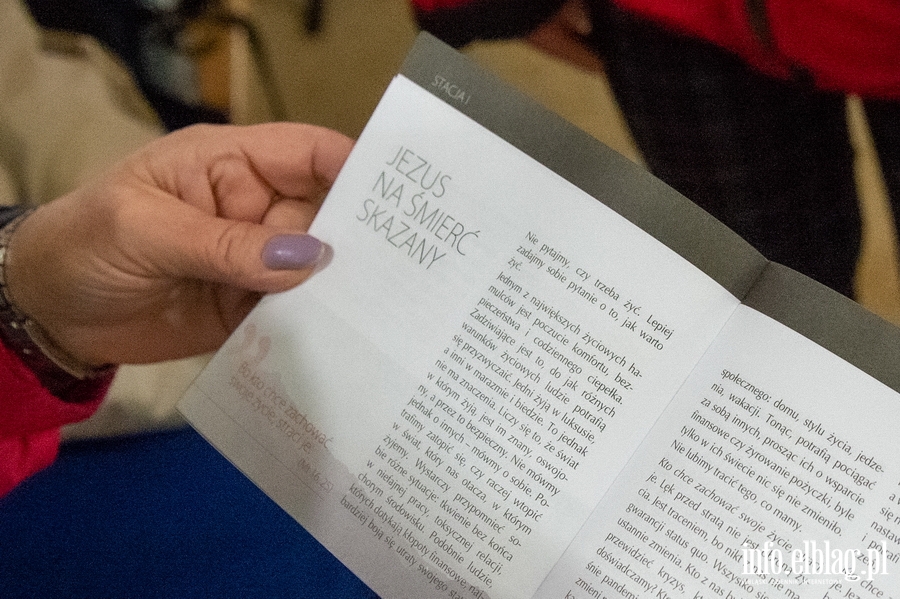 STACJA I
JEZUS
NA ŚMIERĆ
SKAZANY
Bo kto chce zachować
swoje życie, straci je
Nie pytajmy, czy trzeba żyć. Lepiej
zadajmy sobie pytanie o to, jak warto
żyć.
Jednym z największych życiowych ha-
mulców jest poczucie komfortu, bez-
pieczeństwa i codziennego ciepełka.
Zadziwiające jest to, do jak różnych
warunków życiowych ludzie potrafią
się przyzwyczaić. Jedni żyją w luksusie,
a inni w marazmie i biedzie. To jednak
nie ma znaczenia. Liczy się to, że świat
w którym żyją, jest im znany, oswojo-
ny, a przez to bezpieczny. Nie mówmy
jednak o innych – mówmy o sobie. Po-
trafimy zatopić się, czy raczej wtopić
w świat, który nas otacza, w którym
żyjemy. Wystarczy przypomnieć so-
bie różne sytuacje: tkwienie bez końca
w nielajnej pracy, toksycznej relacji,
chorym środowisku. Podobnie ludzie,
których dotykają kłopoty finansowe, naj-
bardziej boją się, utraty swojego
społecznego: domu, stylu życia, jedze-
nia, wakacji. Tonąc, potrafią pociągać
za sobą innych, prosząc ich o wsparcie
finansowe czy żyrowanie pożyczki, byle
tylko w ich świecie nic się nie zmieniło.
Nie lubimy tracić tego, co mamy.
Kto chce zachować swoje życie,
je. Lęk przed stratą nie jest
cia. Jest traceniem, bo nikt
gwarancji status quo. Wszystko
ustannie zmienia. Kto z nas
przewidzieć kryzys,
doświadczamy? Kto
śnie pandemię
zmieni
info.elblag.pl